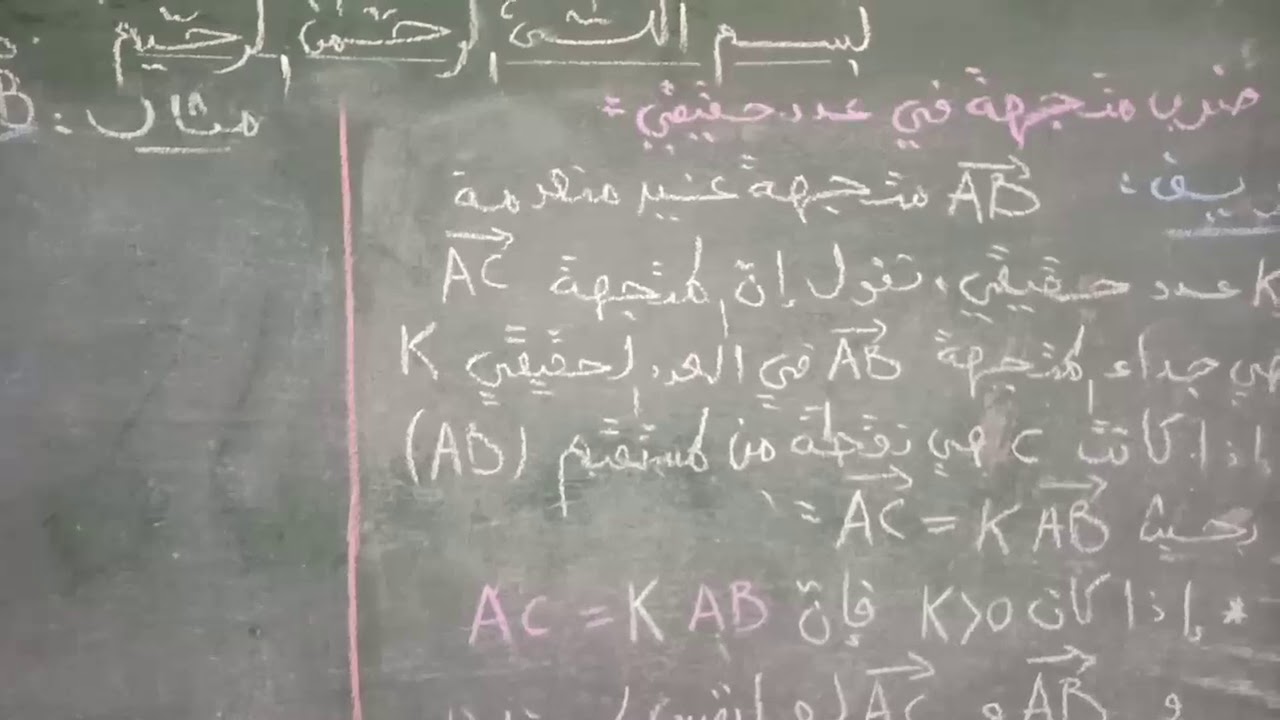 بسم الله الرحمن الرحيم
ضرب متجهة في عدد حقيقي:
AB متجهة غير منعدمة
K عدد حقيقي، نقول إن المتجهة AC
هي جداء المتجهة AB في العدد الحقيقي K
إذا كانت C هي نقطة من المستقيم (AB)
بحيث AC = K AB :
* إذا كان K>0 فإن AC = K AB
و AB و AC لهما نفس
مثال: B